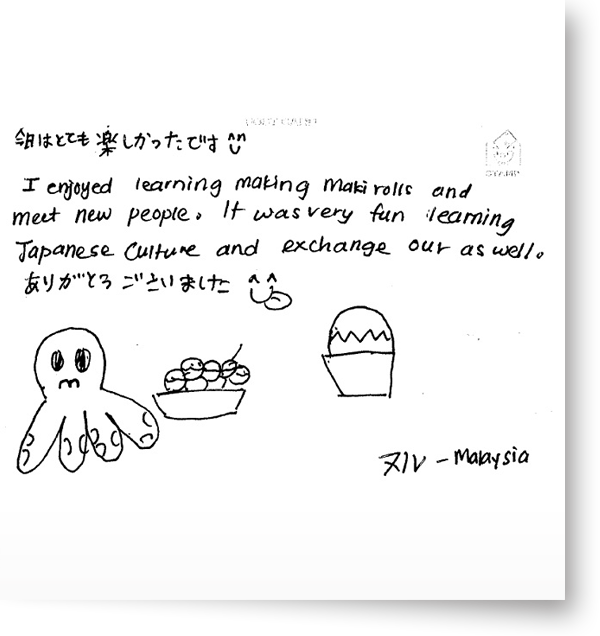 今日はとても楽しかったです
I enjoyed learning making Maki rolls and
meet new people. It was very fun learning
Japanese Culture and exchange our as well.
ありがとうございました
ヌル - Malaysia